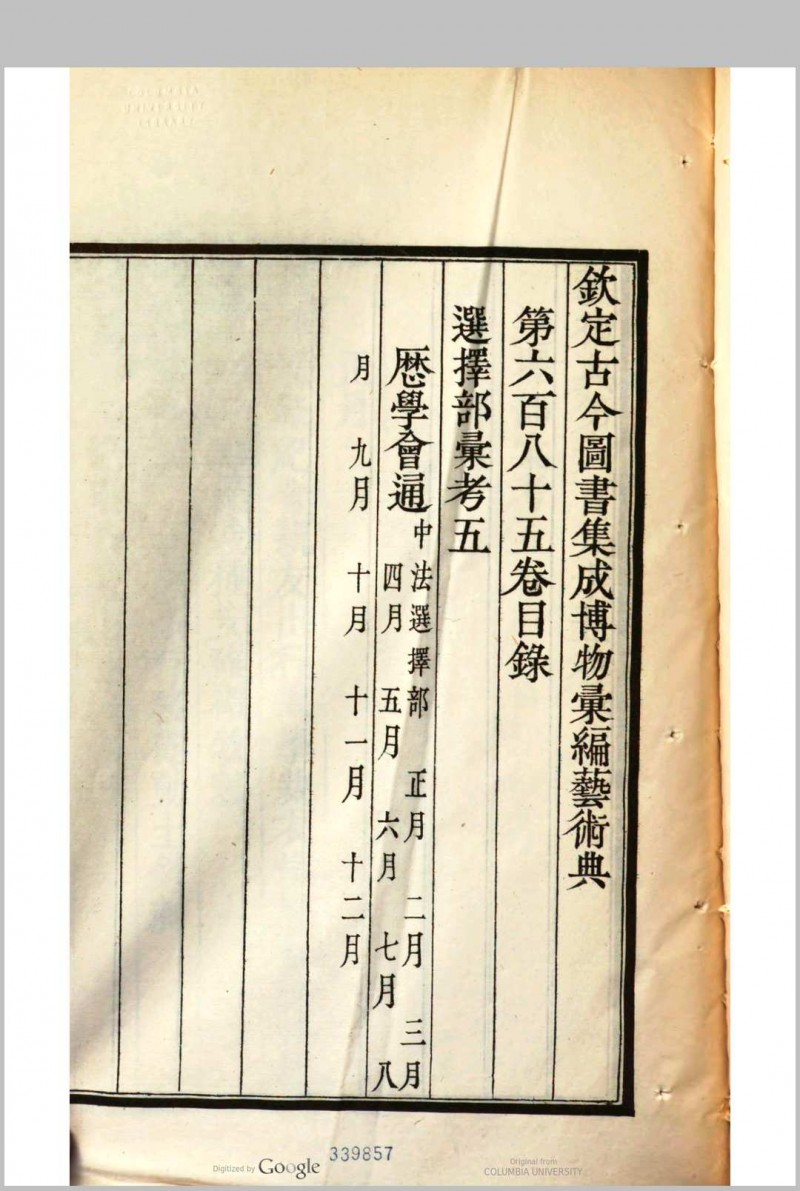 欽定古今圖書集成博物彙編藝術典
第六百八十五卷目錄
選擇部彙考五
歷學會通 中法選擇部 正月 二月 三月
四月 五月 六月 七月 八
月 九月 十月 十一月 十二月
339857
Digitized by Google
Original from
COLUMBIA UNIVERSITY
COLUMBIA
UNIVERSITY
LIBRARY